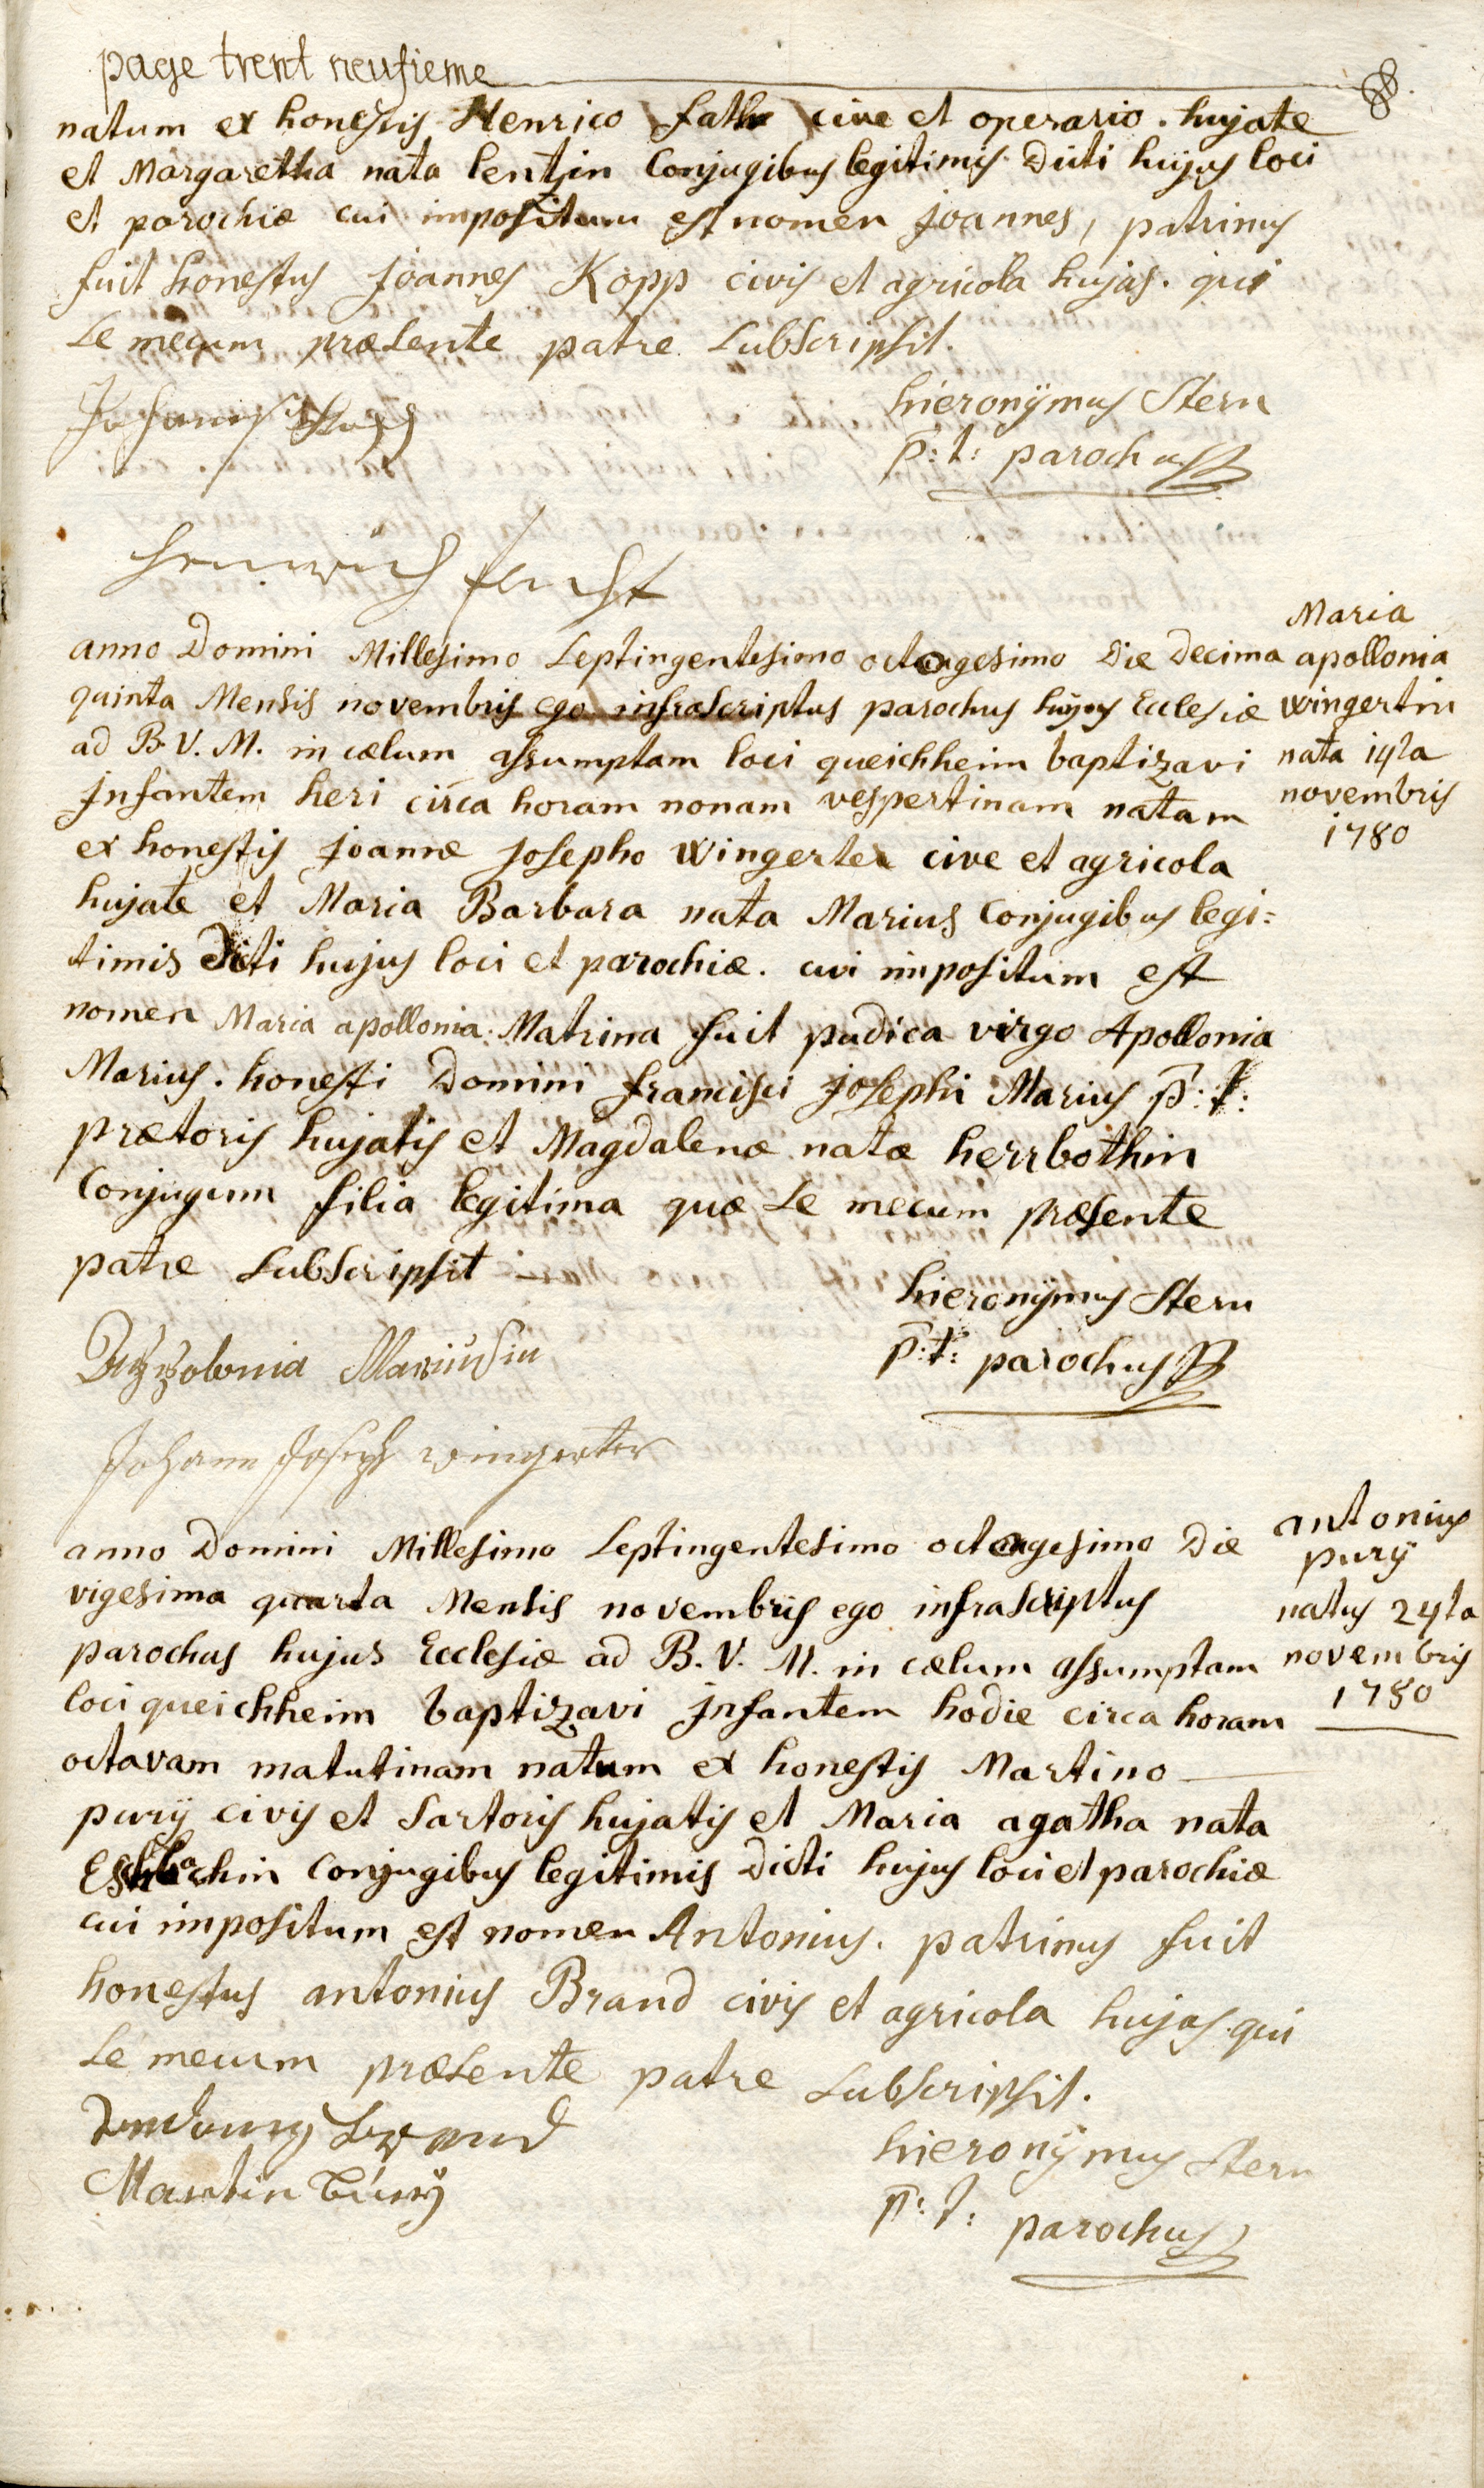 page trent neufieme
natum ex honestis Henrico fath cive et operario. hujate
et Margaretha nata lentzin Conjugibus legitimis Dicti hujus loci
et parochiæ cui impositum est nomen joannes, patrinus
fuit honestus joannes Kopp civis et agricola hujas. qui
se mecum præsente patre subscripsit.
hieronÿmus Stern
p: t: parochus
anno Domini Millesimo septingentesimo octogesimo Die Decima
quinta Mensis novembris ego infrascriptus parochus hujus Ecclesiæ
ad B. V. M. in cælum assumptam loci queichheim baptizavi
jnfantem heri circa horam nonam vespertinam natam
ex honestis joanne josepho Wingerter cive et agricola
hujate et Maria Barbara nata Marius Conjugibus legi=
timis Dicti hujus loci et parochiæ. cui impositum est
nomen Maria apollonia. Matrina fuit pudica virgo Apollonia
Marius. honesti Domini francisci josephi Marius p: t:
prætoris hujatis et Magdalenæ natæ herrbothin
Conjugum filia legitima quæ se mecum præsente
patre subscripsit
Maria
apollonia
Wingertin
nata 14ta
novembris
1780
hieronÿmus Stern
p: t: parochus
Appolonia Mariusin
Johann Joseph wingerter
anno Domini Millesimo septingentesimo octogesimo Die
vigesima quarta Mensis novembris ego infrascriptus
parochus hujus Ecclesiæ ad B. V. M. in cælum assumptam
loci queichheim baptizavi jnfantem hodie circa horam
octavam matutinam natum ex honestis Martino
purÿ civis et sartoris hujatis et Maria agatha nata
Eschbachin Conjugibus legitimis Dicti hujus loci et parochiæ
cui impositum est nomen Antonius. patrinus fuit
honestus antonius Brand civis et agricola hujas. qui
se mecum præsente patre subscripsit.
antonius
purÿ
natus 24ta
novembris
1780
hieronÿmus Stern
p: t: parochus
Brand
Martin